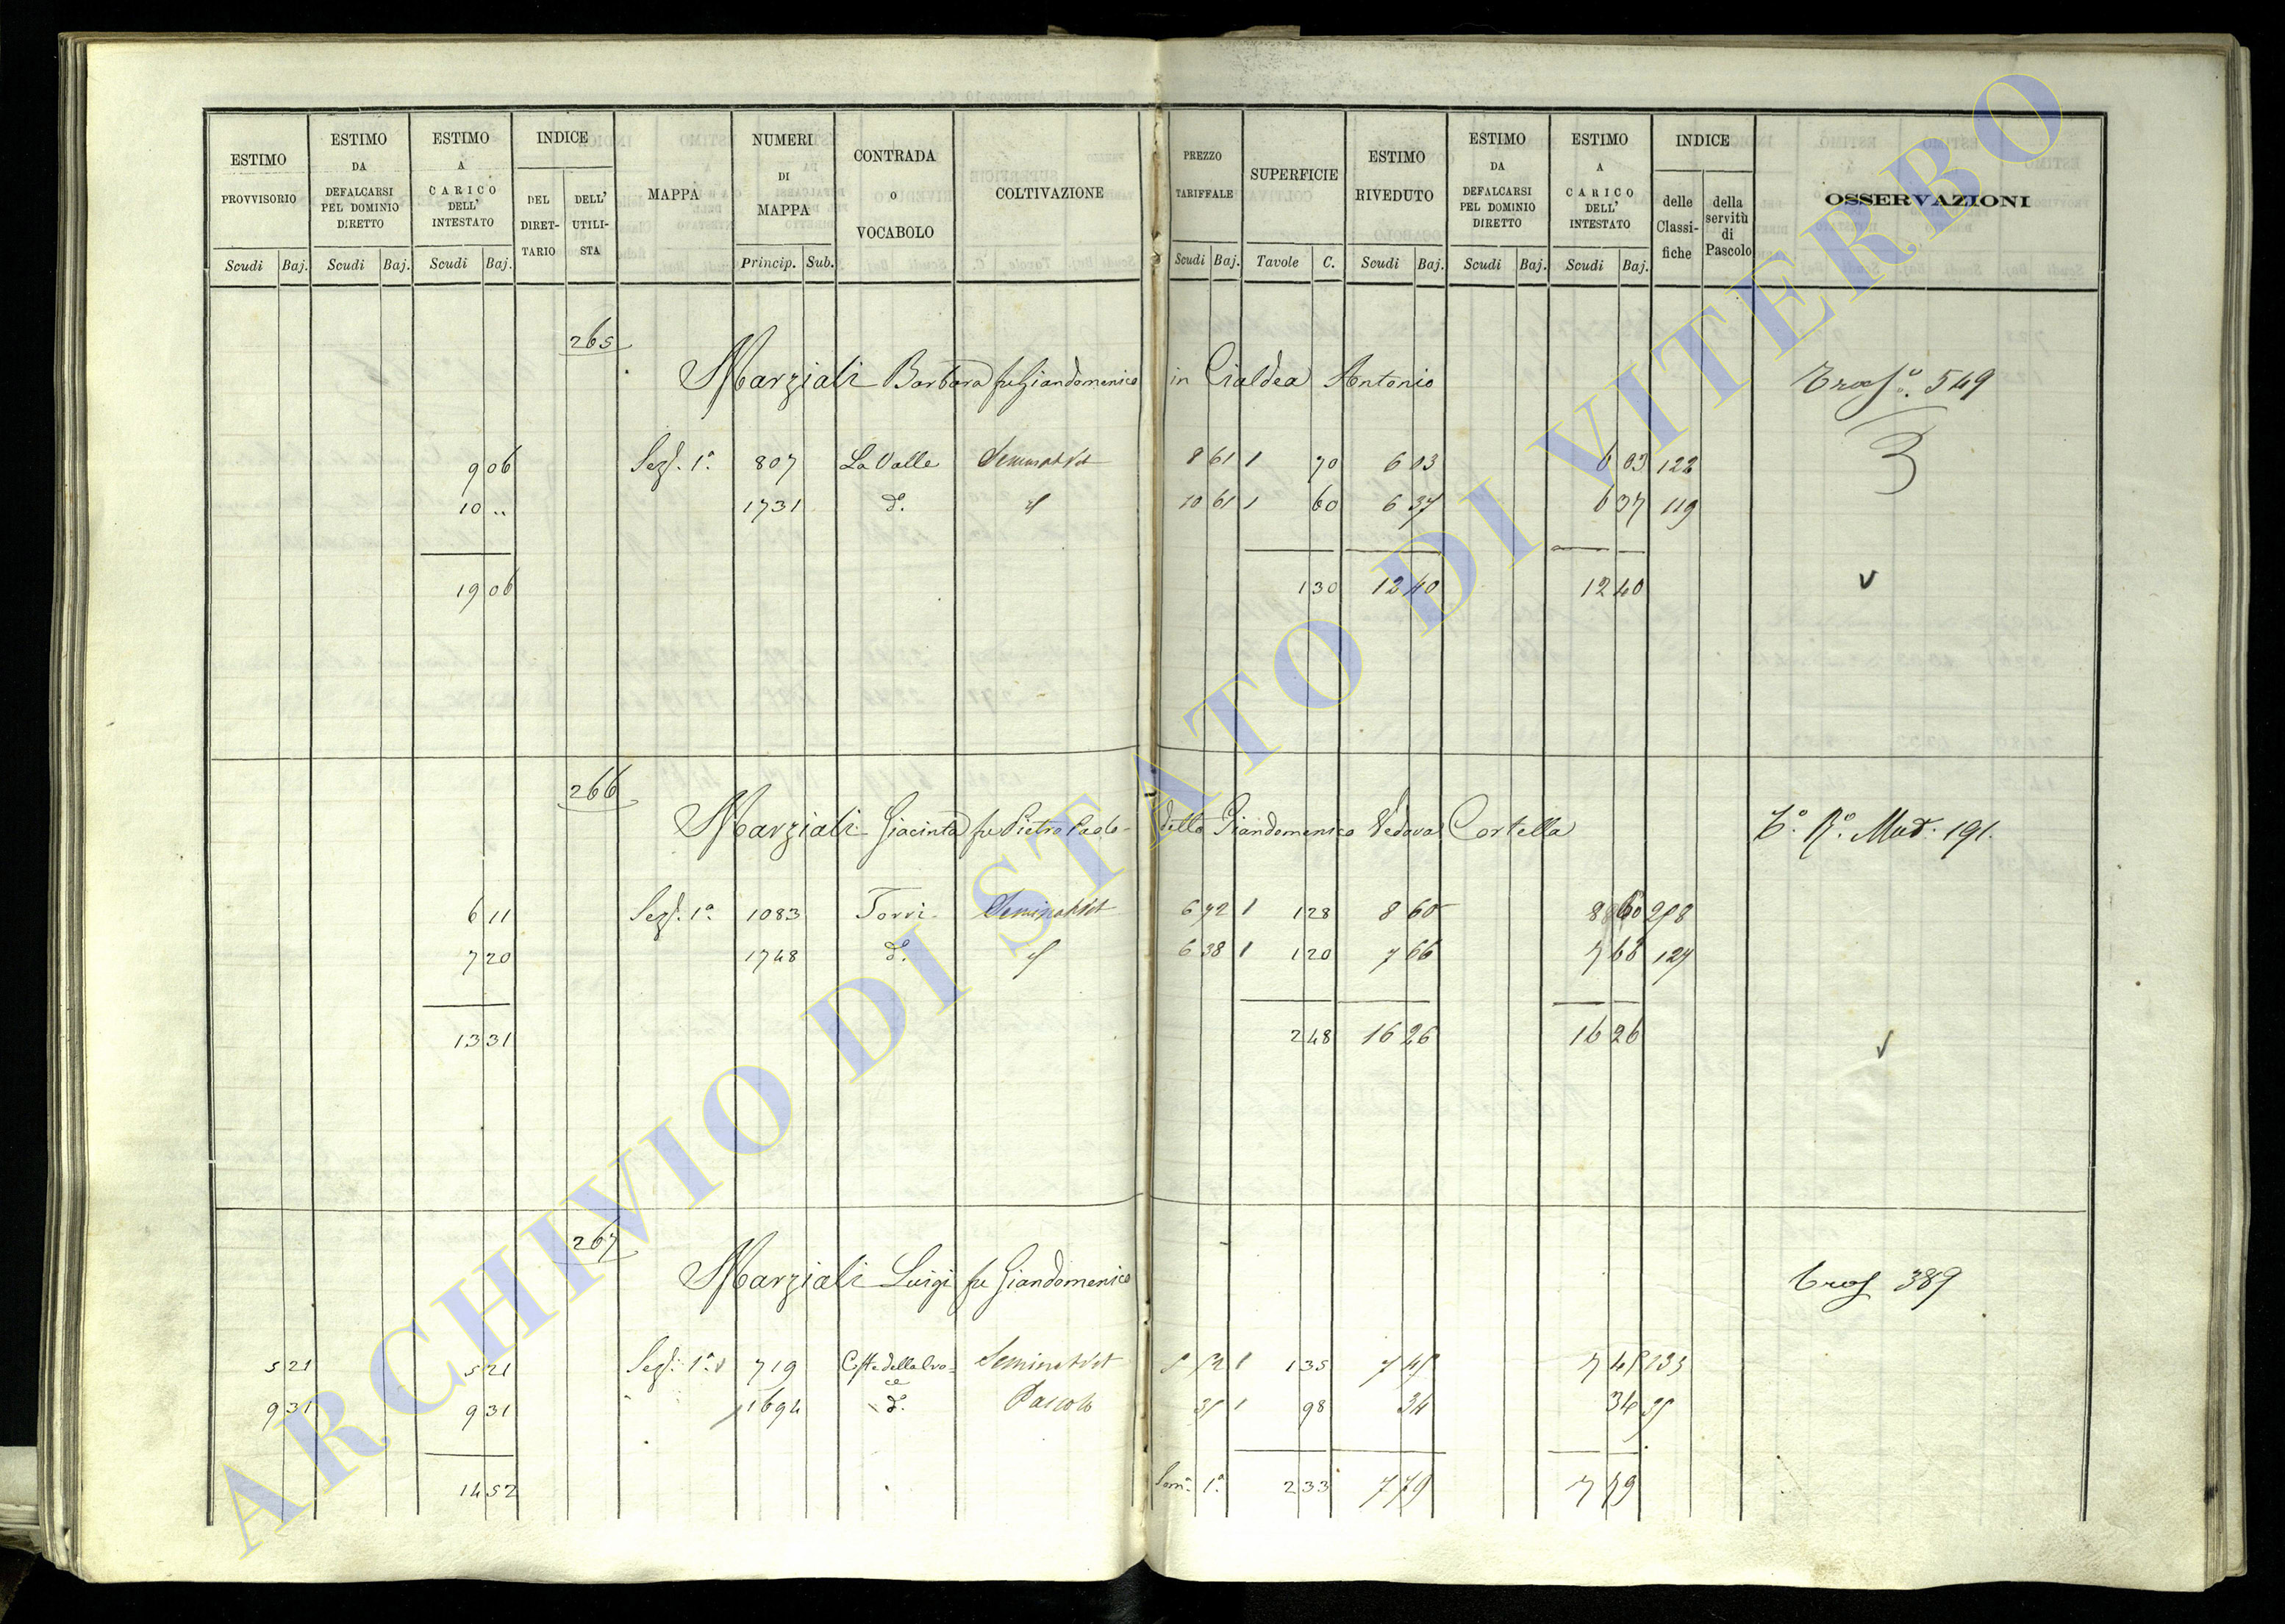 ESTIMO PROVVISORIO Scudi Baj.
ESTIMO DA DEFALCARSI PEL DOMINIO DIRETTO Scudi Baj.
ESTIMO A CARICO DELL' INTESTATO Scudi Baj.
INDICE DEL DIRET-TARIO DELL' UTILI-STA
MAPPA
NUMERI DI MAPPA Princip. Sub.
CONTRADA o VOCABOLO
COLTIVAZIONE
PREZZO TARIFFALE Scudi Baj.
SUPERFICIE Tavole C.
ESTIMO RIVEDUTO Scudi Baj.
ESTIMO DA DEFALCARSI PEL DOMINIO DIRETTO Scudi Baj.
ESTIMO A CARICO DELL' INTESTATO Scudi Baj.
INDICE delle Classi-fiche della servitù di Pascolo
OSSERVAZIONI
265
Marziali Barbara fu Giandomenico in Cialdea Antonio 549
9 06 Sez. 1ª 807 La Valle Seminat Vit 8 61 1 70 6 03 6 03 122
10 .. 1731 d.º 10 61 1 60 6 37 6 37 119
3
19 06 1 30 12 40 12 40 v
266
Marziali Giacinta fu Pietro Paolo detto Giandomenico Vedova Cortella 191.
6 11 Sez. 1ª 1083 Torri Seminat Vit 6 72 1 1 28 8 60 8 60
7 20 1748 d.º 6 38 1 1 20 7 66 127
13 31 2 48 16 26 16 26 v
267
Marziali Luigi fu Giandomenico 389
5 21 5 21 Sez. 1ª 719 Coste della Cro-ce Seminat Vit 1 1 35
9 31 9 31 1694 d.º Pascolo 1 98 34 34
14 52 1ª 2 33 7 79 7 79
ARCHIVIO DI STATO DI VITERBO